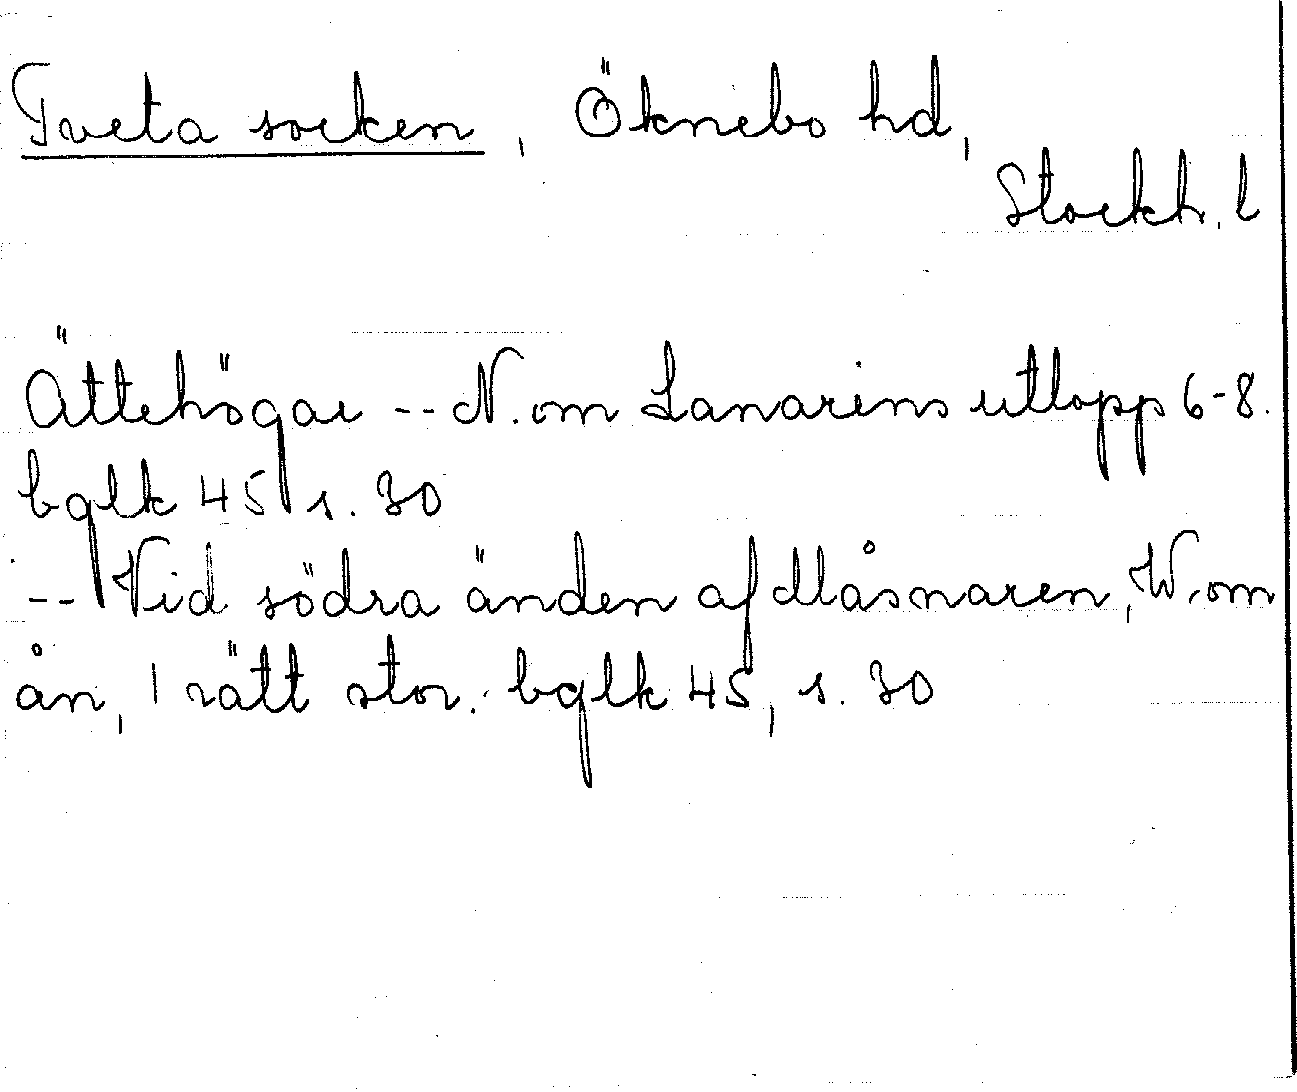 Tveta socken, Öknebo hd,
Stockh. l
Ättehögar -- N. om Lanarens utlopp 6-8.
bglk 45 s. 30
-- Vid södra änden af Måsnaren, W. om
ån, 1 rätt stor. bglk 45, s. 30